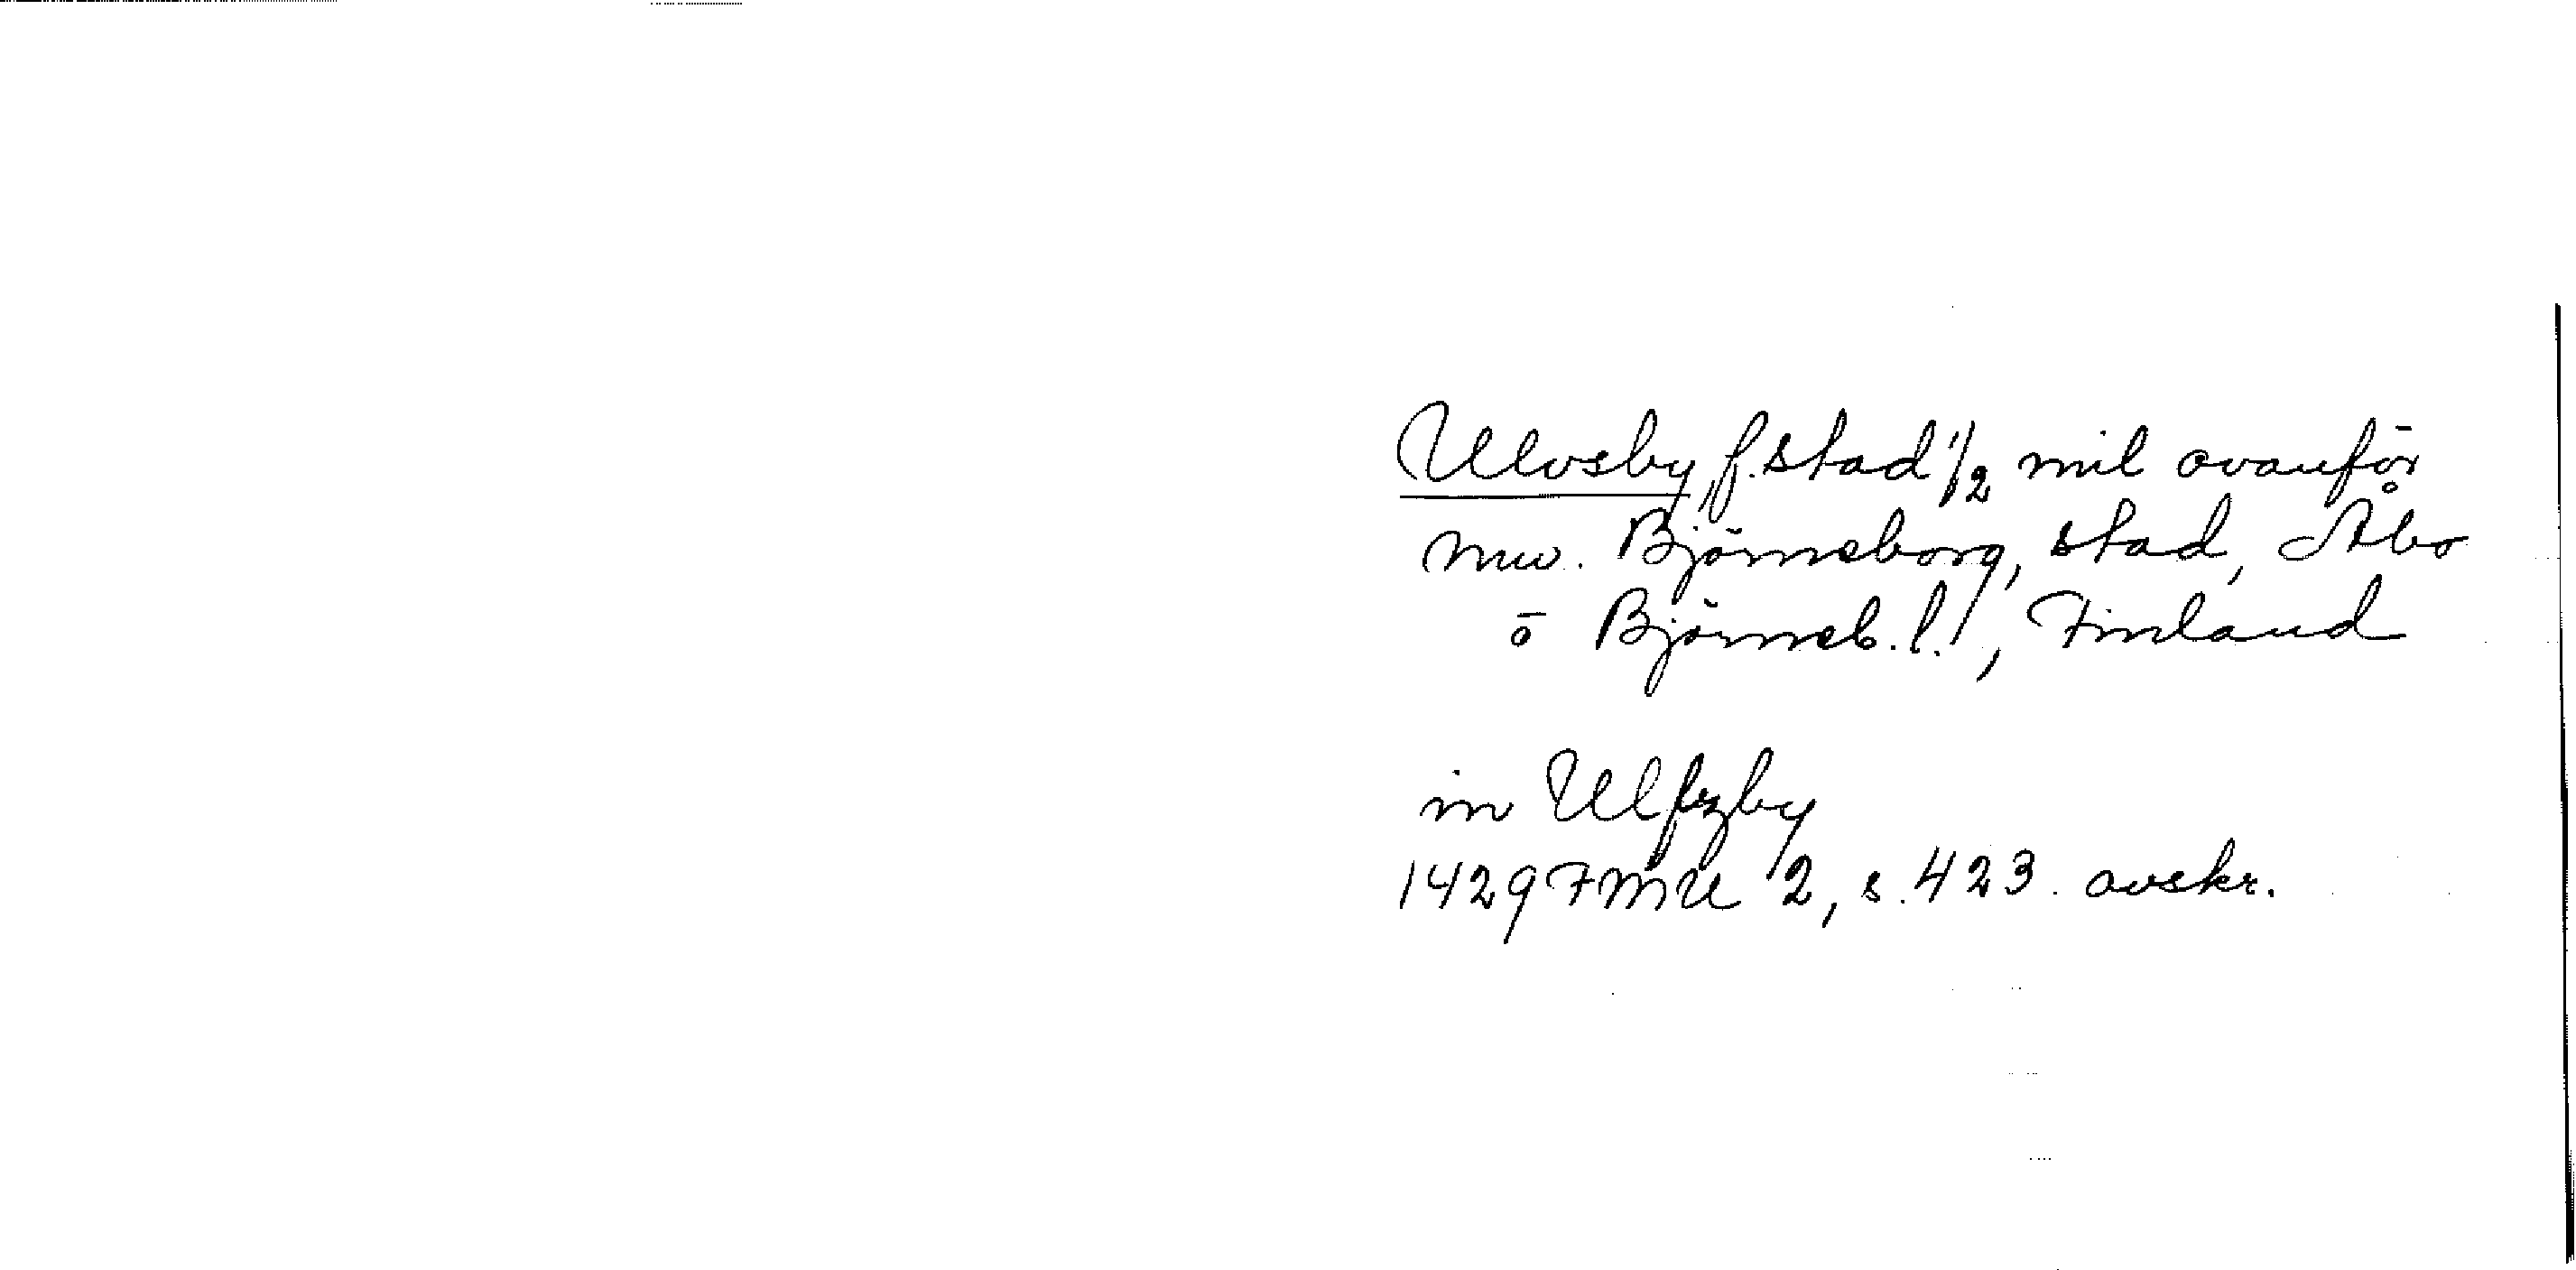 Ulvsby, f. stad 1/2 mil ovanför
nuv. Björneborg, stad, Åbo
o Björneb. l., Finland
in Ulfzby
1429 FMU 2, s. 423. avskr.